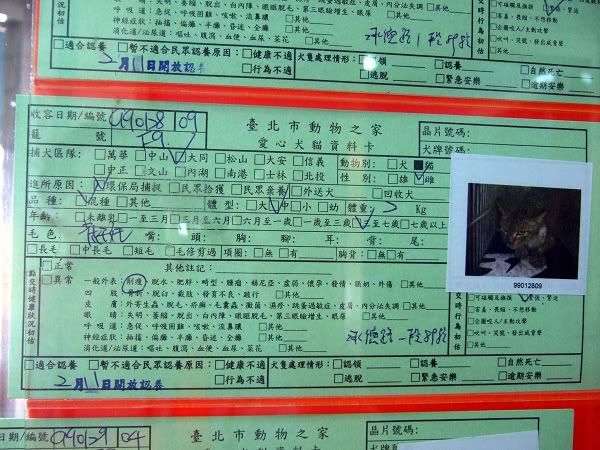 神經症狀：抽搐、偏癱、半癱、昏迷、全癱 □其他
消化道/泌尿道：嘔吐、腹瀉、血便、血尿、菜花 □其他
□適合認養 □暫不適合民眾認養原因：□健康不適 □行為不適
犬隻處理情形：□認領 □認養 □自然死亡
□逃脫 □緊急安樂 □逾期安樂
2月11日開放認養
收容日期/編號 990128 09
臺北市動物之家
晶片號碼：
籠 號 F9.7
愛心犬貓資料卡
犬牌號碼：
捕犬區隊：□萬華 □中山 ☑大同 □松山 □大安 □信義 動物別：□犬 ■貓
□中正 □文山 □內湖 □南港 □士林 □北投 性別：□雄 ☑雌
進所原因：☑環保局捕捉 □民眾拾獲 □民眾棄養 □外送犬 □回收犬
品種：☑混種 □其他 體型：□大 ☑中 □小 □幼 體重： Kg
年齡：□未離乳 □一至三月 □三月至六月 □六月至一歲 □一歲至三歲 ☑三至七歲 □七歲以上
毛色： 嘴： 頭： 胸： 腳： 耳： 背： 尾：
□長毛 □中長毛 □短毛 □毛修剪過 項圈：□無 □有 胸背：□無 □有
點交時健康狀況初估
□正常 其他註記：
□異常 一般外表：削瘦、脫水、肥胖、畸型、腫瘤、赫尼亞、虛弱、懷孕、發情、脹奶、外傷 □其他
四肢：骨折、脫臼、截肢、發育不良、跛行 □其他
皮膚：外寄生蟲、脫毛、疥癬、毛囊蟲、黴菌、濕疹、跳蚤過敏症、皮膚、內分泌失調 □其他
眼睛：失明、萎縮、脫出、白內障、眼瞼脫毛、第三眼瞼增生、眼屎 □其他
呼吸道：急促、呼吸困難、咳嗽、流鼻膿 □其他
神經症狀：抽搐、偏癱、半癱、昏迷、全癱 □其他
消化道/泌尿道：嘔吐、腹瀉、血便、血尿、菜花 □其他
承德路一段
99012809
□適合認養 □暫不適合民眾認養原因：□健康不適 □行為不適
犬隻處理情形：□認領 □認養 □自然死亡
□逃脫 □緊急安樂 □逾期安樂
2月11日開放認養
日期/編號 990129 04
臺北市動物之家
晶片號碼：